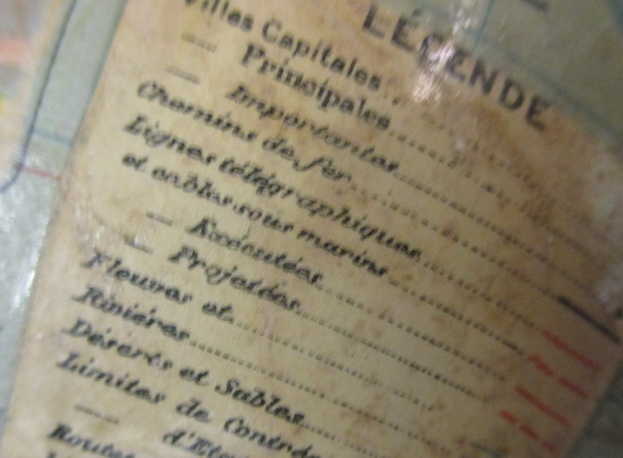 LÉGENDE
Villes Capitales
— Principales
— Importantes
Chemins de fer
Lignes télégraphiques
et cables sous marins
— Exécutées
— Projetées
Fleuves et
Rivières
Déserts et Sables
Limites de Contrées
— d'Etats
Routes